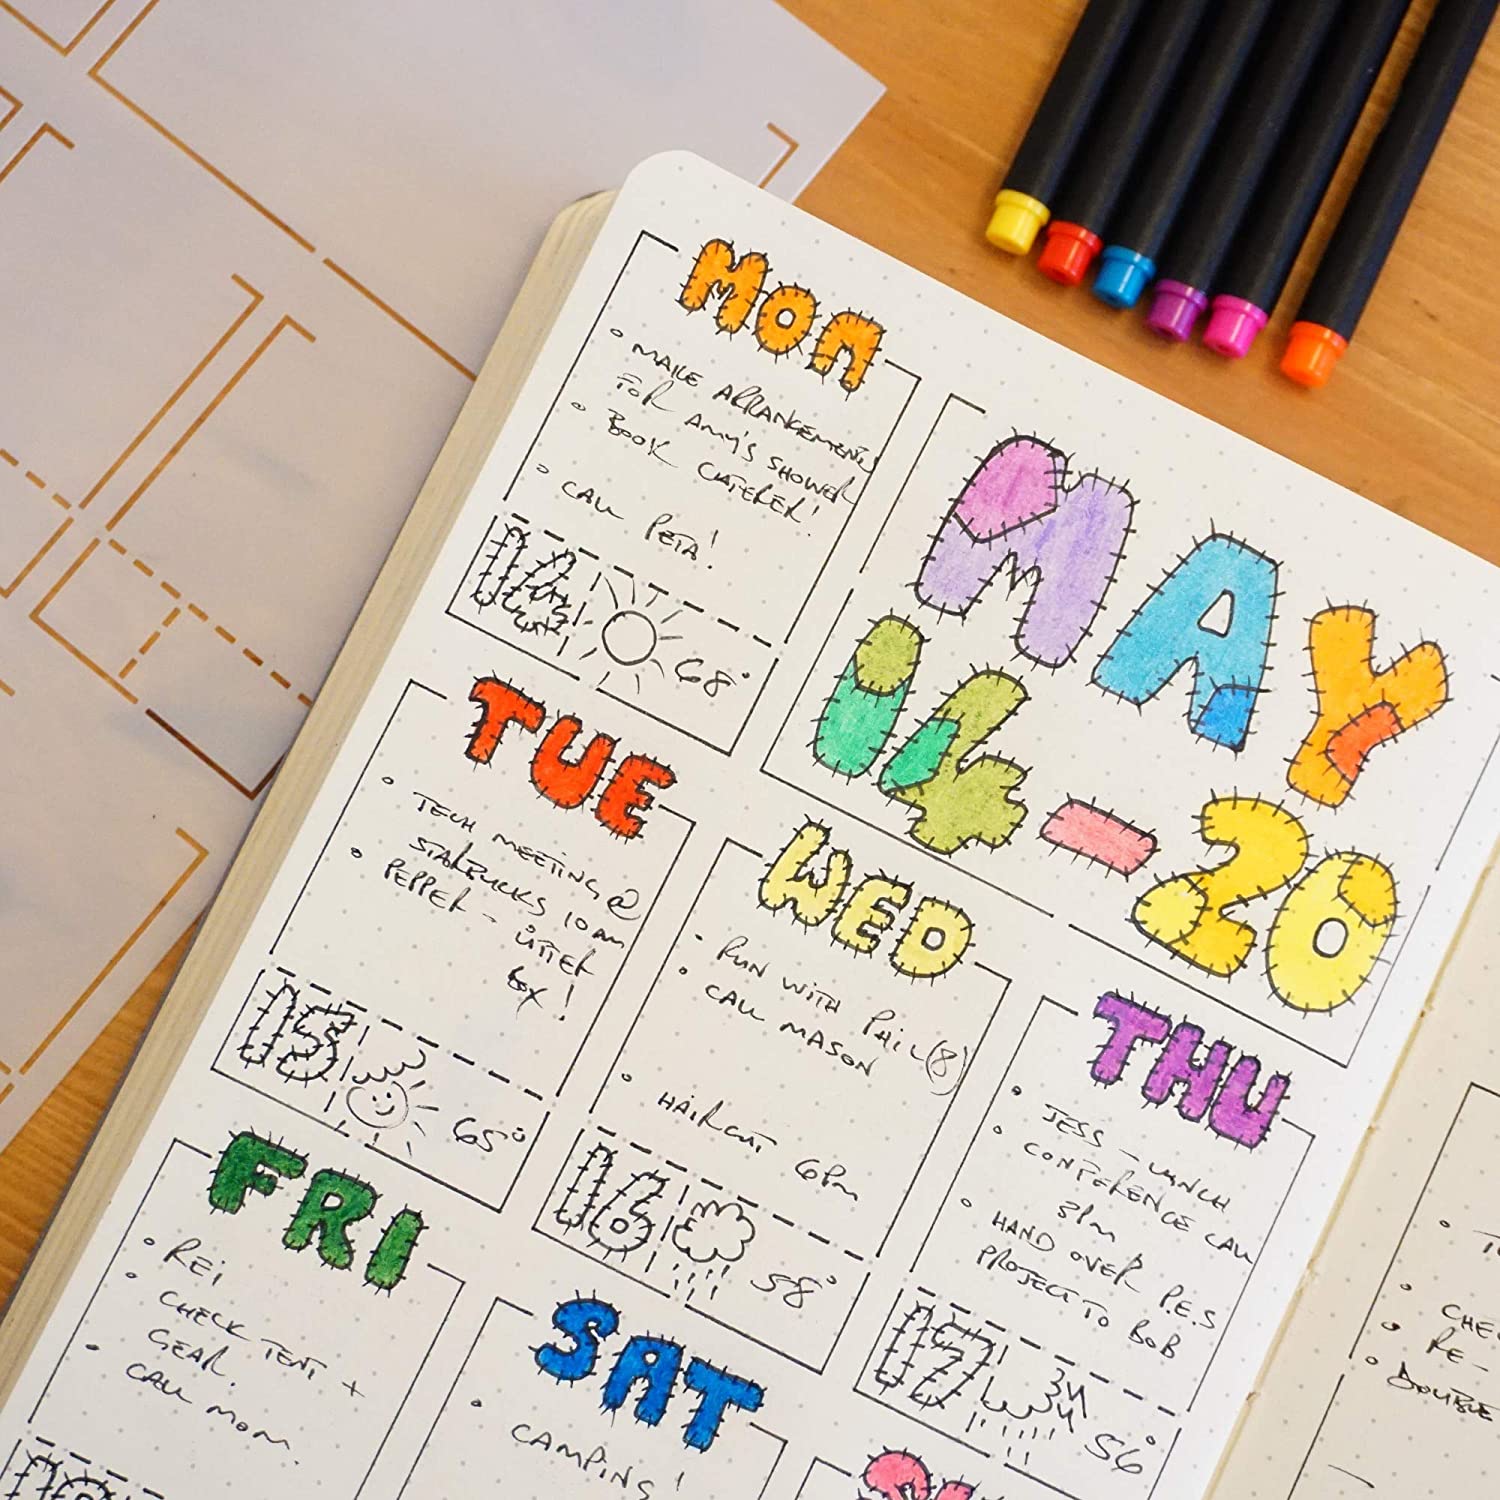 MON
MAKE ARRANGEMENTS
FOR AMY'S SHOWER
BOOK CATERER!
CALL PETA!
14
68°
MAY
14-20
TUE
TECH MEETING @
STARBUCKS 10am
PEPPER -
LITTER
BOX!
15
65°
WED
RUN WITH PHIL (8)
CALL MASON
HAIRCUT 6PM
16
58°
THU
JESS - LUNCH
CONFERENCE CALL
3PM
HAND OVER P.E.S
PROJECT TO BOB
17
56°
FRI
REI
CHECK TENT +
GEAR.
CALL MOM.
SAT
CAMPING!
RE-
DOUBLE